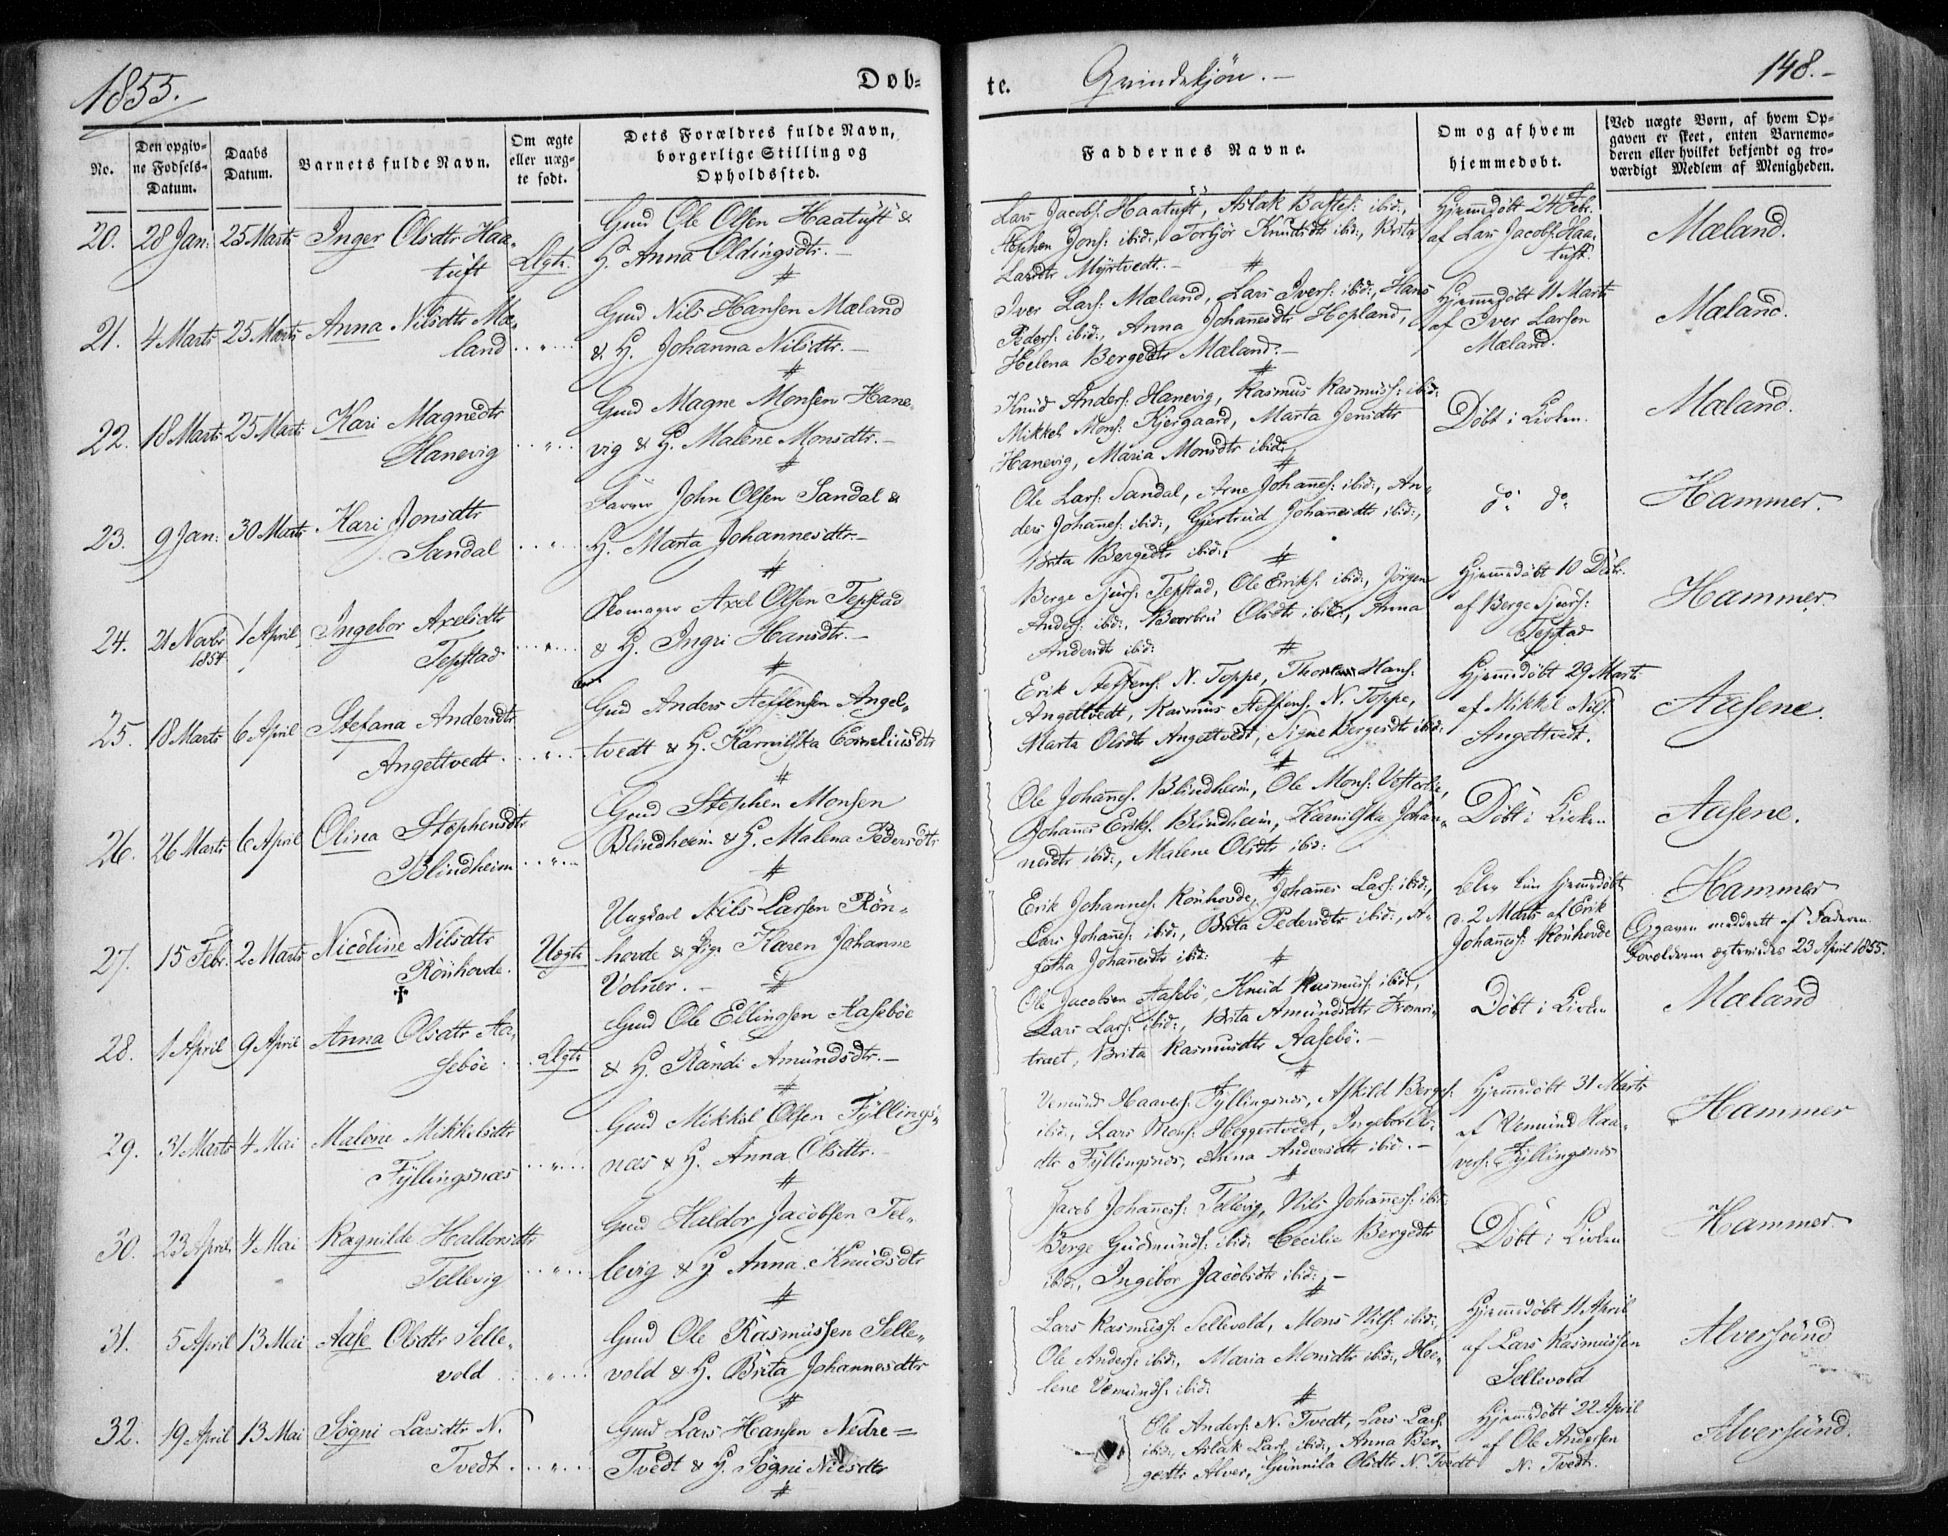 1855.
Døb-
te.
Qvindekjön. —
148. —
No.
Den opgiv-
ne Fødsels-
Datum.
Daabs
Datum.
Barnets fulde Navn.
Om ægte
eller uæg-
te født.
Dets Forældres fulde Navn,
borgerlige Stilling og
Opholdssted.
Faddernes Navne.
Om og af hvem
hjemmedøbt.
(Ved uægte Børn, af hvem Op-
gaven er skeet, enten Barnemo-
deren eller hvilket bekjendt og tro-
værdigt Medlem af Menigheden.
20. 28 Jan: 25 Marts Inger Olsdtr Haa-
tuft Ægte
Gmd Ole Olsen Haatuft &
H. Anna Oldingsdtr. —
Lars Jacobs: Haatuft, Aslak ibid:,
Stephen Jons: ibid:, Torbjör Knutsdt ibid:, Brita
Larsdtr Myrtvedt. —
Hjemmedöbt 24 Febr.
af Lars Jacobs: Haa-
tuft.
Mæland.
21. 4 Marts 25 Marts Anna Nilsdtr Mæ-
land
Gmd Nils Hansen Mæland
& H. Johanna Nilsdtr. —
Iver Lars: Mæland, Lars Ivers: ibid:, Hans
Peders: ibid:, Anna Johannesdtr Hopland,
Helena Bergedtr Mæland. —
Hjemmedöbt 11 Marts
af Iver Larsen
Mæland.
Mæland.
22. 18 Marts 25 Marts Kari Magnedtr
Hanevig
Gmd Magne Monsen Hane-
vig & H. Malene Monsdtr. —
Knud Anders: Hanevig, Rasmus Rasmuss: ibid:
Mikkel Mons: Kjergaard, Marta Jensdtr
Hanevig, Maria Monsdtr ibid:
Döbt i Kirken.
Mæland.
23. 9 Jan: 30 Marts Kari Jonsdtr
Sandal
John Olsen Sandal &
H. Marta Johannesdtr —
Ole Lars: Sandal, Arne Johanes: ibid:, An-
ders Johanes: ibid:, Gjertrud Johanesdt ibid:,
Brita Bergedtr ibid:,
do do
Hammer.
24. 21 Novbr 1 April Ingebor Axelsdtr
1854
Tepstad
Skomager Axel Olsen Tepstad
& H. Ingri Hansdtr. —
Berge Sjurs: Tepstad, Ole Eriks: ibid:, Jörgen
Anders: ibid:, Olsdt ibid:, Anna
Andersdt ibid:
Hjemmedöbt 10 Dcbr.
af Berge Sjurs:
Tepstad
Hammer.
25. 18 Marts 6 April Stefana Andersdtr
Angeltvedt
Gmd Anders Steffensen Angel-
tvedt & H. Karnilska Corneliusdtr
Erik Steffens: N. Toppe, Hans:
Angeltvedt, Rasmus Steffens: N. Toppe,
Marta Olsdtr Angeltvedt, Signe Bergesdtr ibid:
Hjemmedöbt 29 Marts
af Mikkel Nils:
Angeltvedt.
Aasene.
26. 26 Marts 6 April Olina Stephensdtr
Blindheim
Gmd Stephen Monsen
Blindheim & H. Malena Pedersdtr
Ole Johanes: Blindheim, Ole Mons: Vesterlie,
Johanes Eriks: Blindheim, Karnilska Johan-
nesdtr ibid:, Malene Olsdtr ibid:
Döbt i Kirken
Aasene.
27. 15 Febr. 2 Marts Nicoline Nilsdtr
Rönhovde.
Uægte
Ungkarl Nils Larsen Rön-
hovde & Pige Karen Johanne
Volner. —
Erik Johannes: Rönhovde, Johanes Lars: ibid:,
Lars Johans: ibid:, Brita Pedersdtr ibid:, A-
gatha Johanesdtr ibid:
hjemmedöbt
d. 2 Marts af Erik
Johaness: Rönhovde
Hammer
Opgaven meddeelt af Faderen.
Forældrene ægteviedes 23 April 1855.
28. 1 April 9 April Anna Olsdtr Aa-
seböe
Ægte
Gmd Ole Ellingsen Aaseböe
& H. Randi Amundsdtr. —
Ole Jacobsen Aasebö, Knud Rasmus: ibid:,
Lars Lars: ibid:, Brita Amundsdtr
træt, Brita Rasmusdtr Aasebö. —
Döbt i Kirken
Mæland
29. 31 Marts 4 Mai Malene Mikkelsdtr
Fyllingsnæs
Gmd Mikkel Olsen Fyllings-
næs & H. Anna Olsdtr. —
Vemund Haaves: Fyllingsnes, Askild Berges:
ibid:, Lars Mons: Heggertvedt, Ingebor Ols-
dtr Fyllingsnes, Anna Andersdtr ibid. —
Hjemmedöbt 31 Marts
af Vemund Haa-
vers: Fyllingsnes
Hammer
30. 23 April 4 Mai Ragnilde Haldorsdtr
Tellevig
Gmd Haldor Jacobsen Tel-
levig & H. Anna Knudsdtr
Jacob Johaness: Tellevig, Nils Johaness: ibid:
Berge Gudmunds: ibid: Cecilie Bergedtr
ibid:, Ingebor Jacobsdtr ibid:, —
Döbt i Kirken
Hammer.
31. 5 April 13 Mai Aase Olsdtr Selle-
vold
Gmd Ole Rasmussen Selle-
vold & H. Brita Johannesdtr
Lars Rasmuss: Sellevold, Mons Nils: ibid:,
Ole Anders: ibid:, Maria Monsdtr ibid:, He-
lene Vemunds: ibid:
Hjemmedöbt 11 April
af Lars Rasmussen
Sellevold
Alversund
32. 19 April 13 Mai Sögni Larsdtr N.
Tvedt
Gmd Lars Hansen Nedre-
Tvedt & H. Sögni Nilsdtr
Ole Anders: N. Tvedt, Lars Lars:
ibid:, Aslak Lars: ibid:, Anna Ber-
gedtr Alver, Gunnila Olsdtr N. Tvedt
Hjemmedöbt 22 April
af Ole Andersen
N. Tvedt.
Alversund.